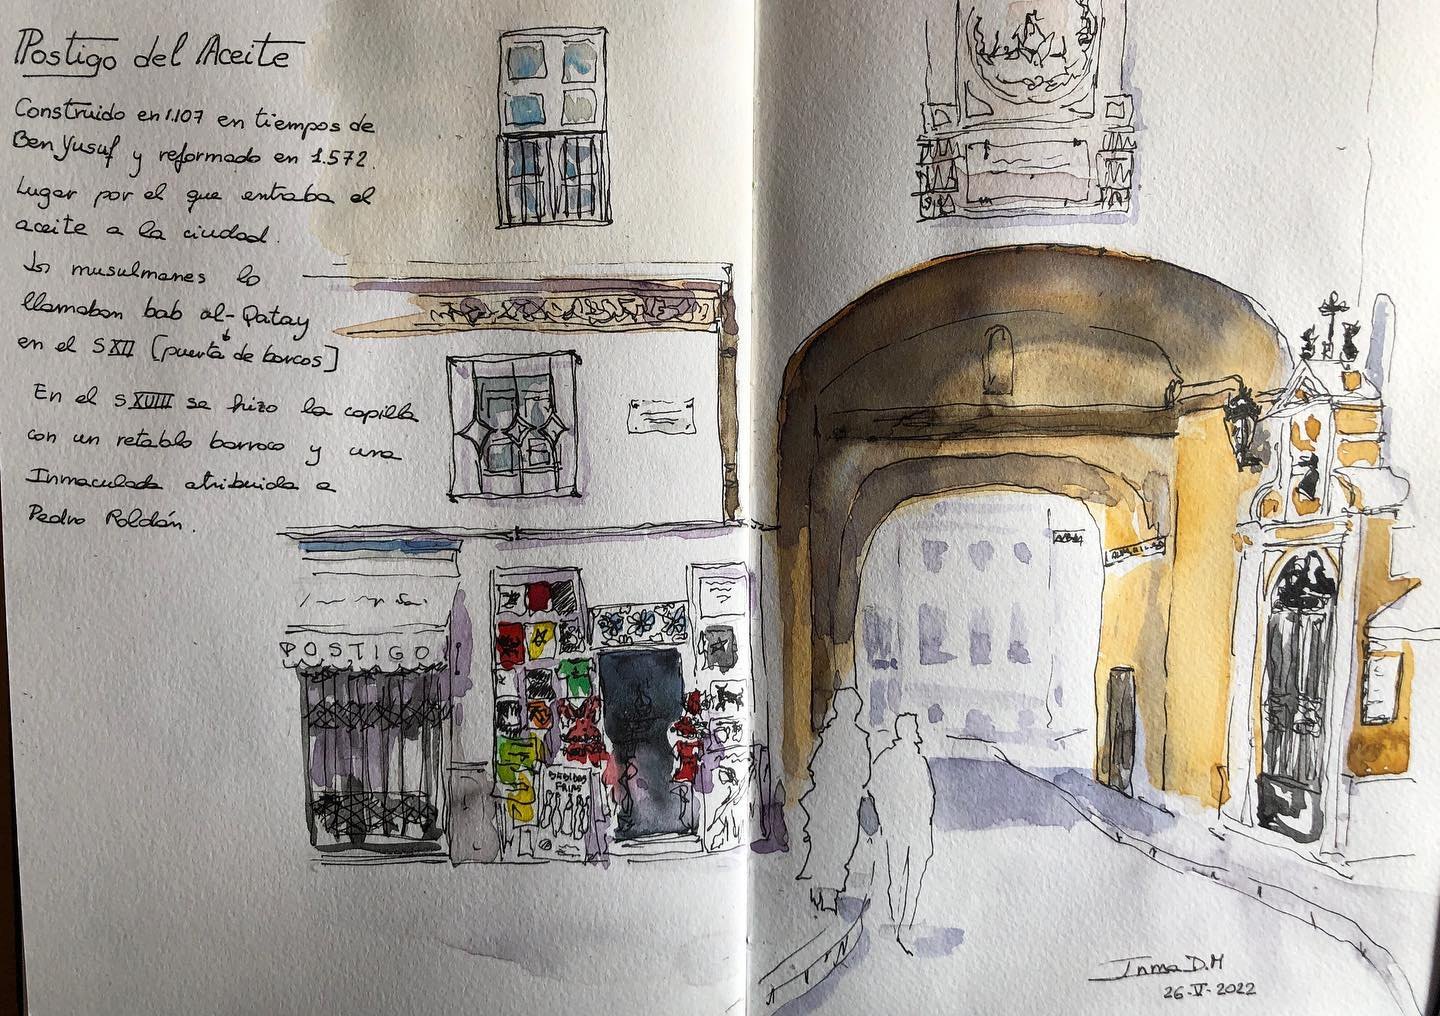 Postigo del Aceite
Construido en 1.107 en tiempos de
Ben Yusuf y reformado en 1.572.
Lugar por el que entraba el
aceite a la ciudad.
Los musulmanes lo
llamaban bab al-Qatay
en el S XII (puerta de barcos)
En el S XVIII se hizo la capilla
con un retablo barroco y una
Inmaculada atribuida a
Pedro Roldán.
POSTIGO
BEBIDAS
FRIAS
Inma D.M
26-V-2022